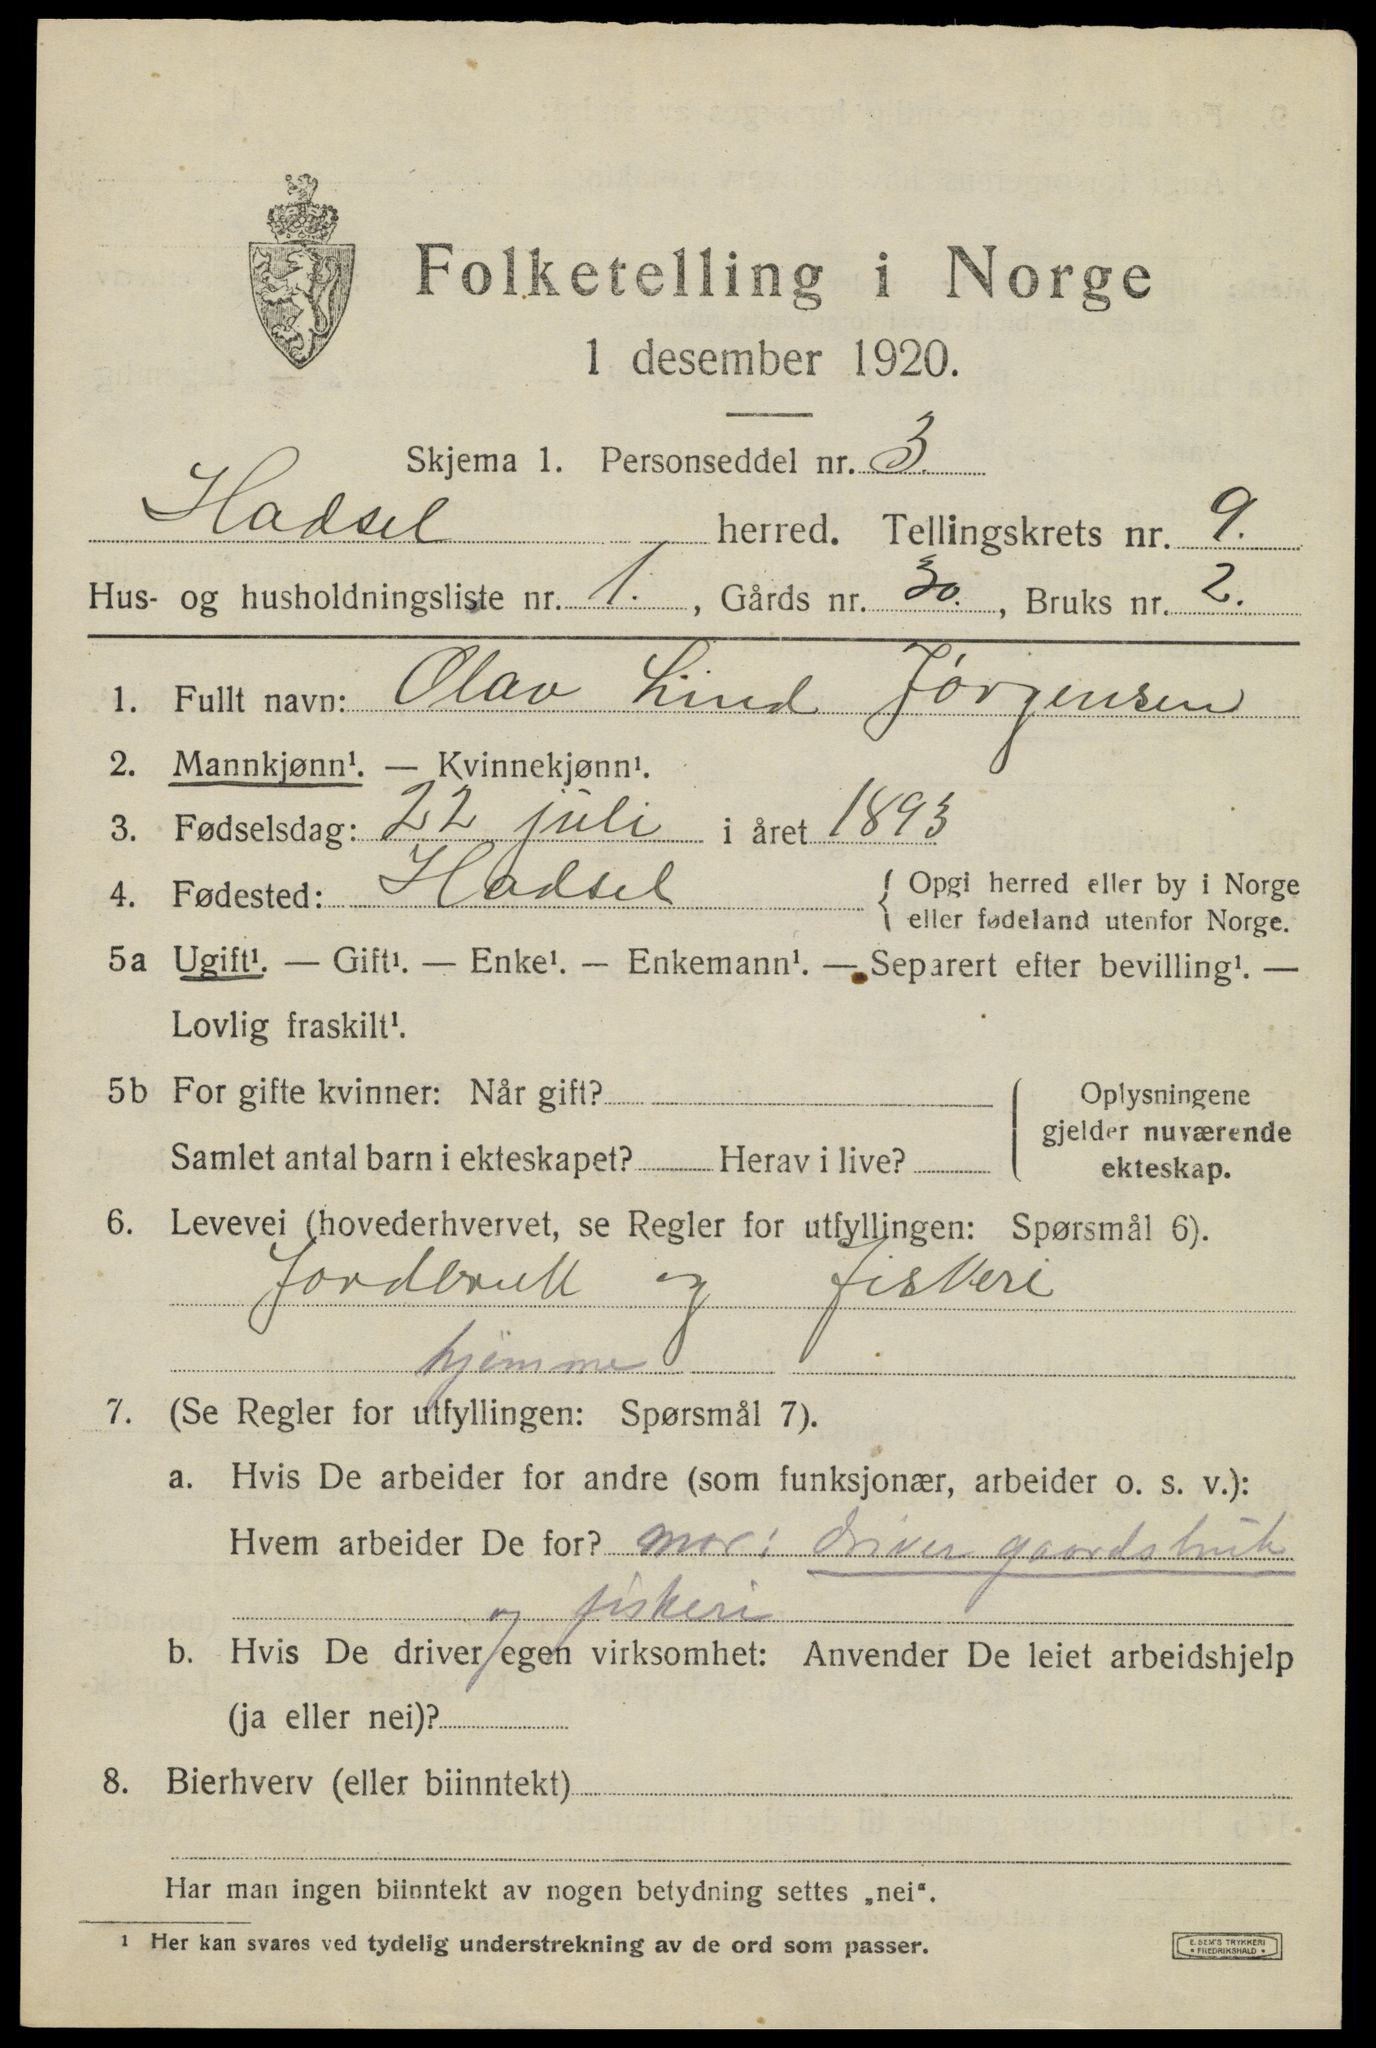 Folketelling i Norge
1 desember 1920.
Skjema 1. Personseddel nr. 3.
Hadsel herred. Tellingskrets nr. 9.
Hus- og husholdningsliste nr. 1., Gårds nr. 30., Bruks nr. 2.
1. Fullt navn: Olav Lind Jørgensen
2. Mannkjønn¹. — Kvinnekjønn¹.
3. Fødselsdag: 22 juli i året 1893
4. Fødested: Hadsel { Opgi herred eller by i Norge
eller fødeland utenfor Norge.
5a Ugift¹. — Gift¹. — Enke¹. — Enkemann¹. — Separert efter bevilling¹. —
Lovlig fraskilt¹.
5b For gifte kvinner: Når gift?
Samlet antal barn i ekteskapet? Herav i live?
Oplysningene
gjelder nuværende
ekteskap.
6. Levevei (hovederhvervet, se Regler for utfyllingen: Spørsmål 6).
Jordbruk og fiskeri
hjemme
7. (Se Regler for utfyllingen: Spørsmål 7).
a. Hvis De arbeider for andre (som funksjonær, arbeider o. s. v.):
Hvem arbeider De for? mor: driver gaardsbruk
og fiskeri
b. Hvis De driver egen virksomhet: Anvender De leiet arbeidshjelp
(ja eller nei)?
8. Bierhverv (eller biinntekt)
Har man ingen biinntekt av nogen betydning settes „nei“.
¹ Her kan svares ved tydelig understrekning av de ord som passer.
E. SEM'S TRYKKERI
• FREDRIKSHALD •